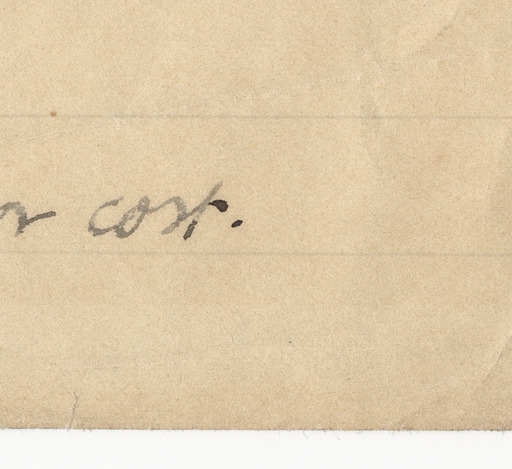 or cost.